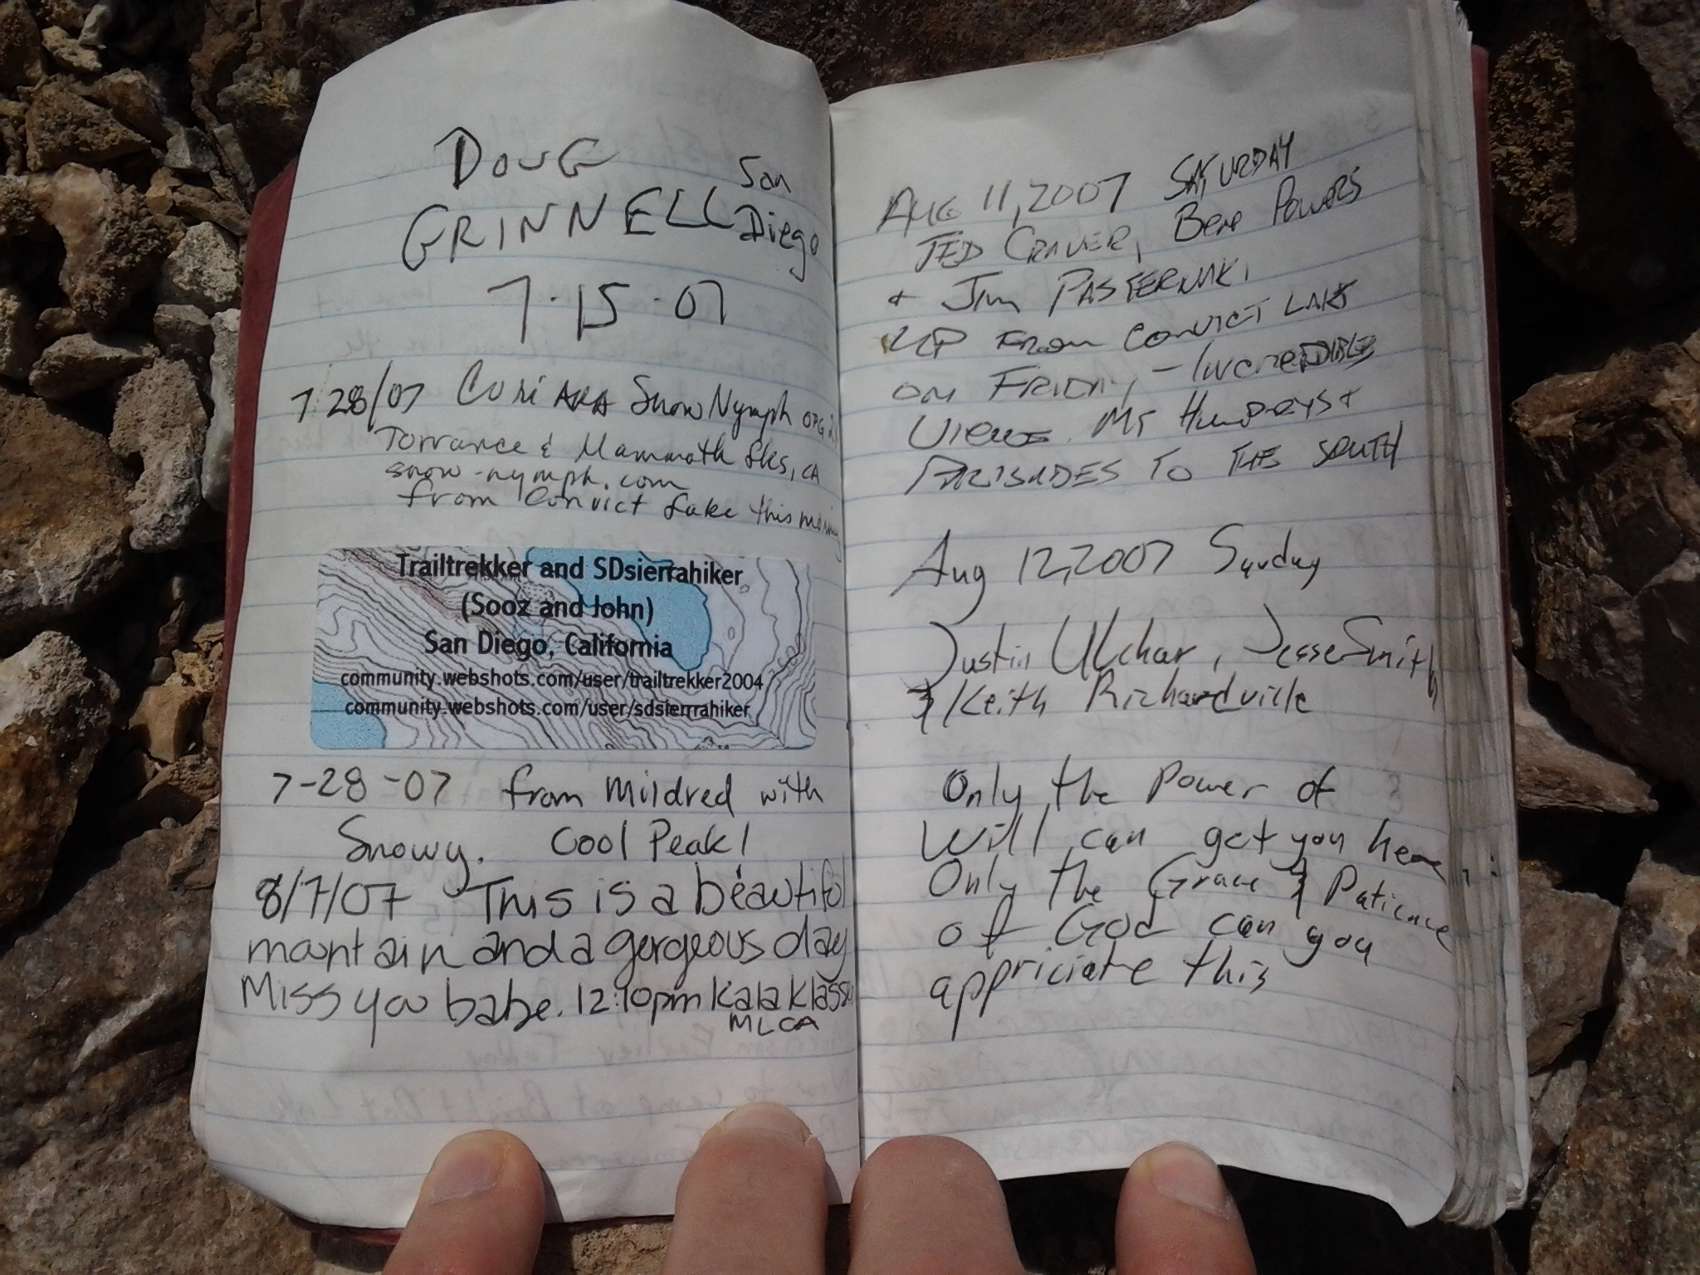 DOUG
GRINNELL San Diego
7·15·07
7/28/07 Cori AKA Snow Nymph
Torrance & Mammoth Lks, CA
snow-nymph.com
from Convict Lake this morning
Trailtrekker and SDsierrahiker
(Sooz and John)
San Diego, California
community.webshots.com/user/trailtrekker2004
community.webshots.com/user/sdsierrahiker
7-28-07 from Mildred with
Snowy. Cool Peak!
8/7/07 This is a beautiful
mountain and a gorgeous day
Miss you babe. 12:10pm Kala Klass
MLCA
AUG 11, 2007 SATURDAY
JED CRAVER, Powers
+ Jim PASTERNAK.
UP FROM CONVICT LAKE
ON FRIDAY - INCREDIBLE
VIEWS. MT HUMPREYS +
PALISADES TO THE SOUTH
Aug 12, 2007 Sunday
Justin Ulchar, Jesse Smith
& Keith Richardville
Only the Power of
Will can get you here
Only the Grace & Patience
of God can you
appriciate this